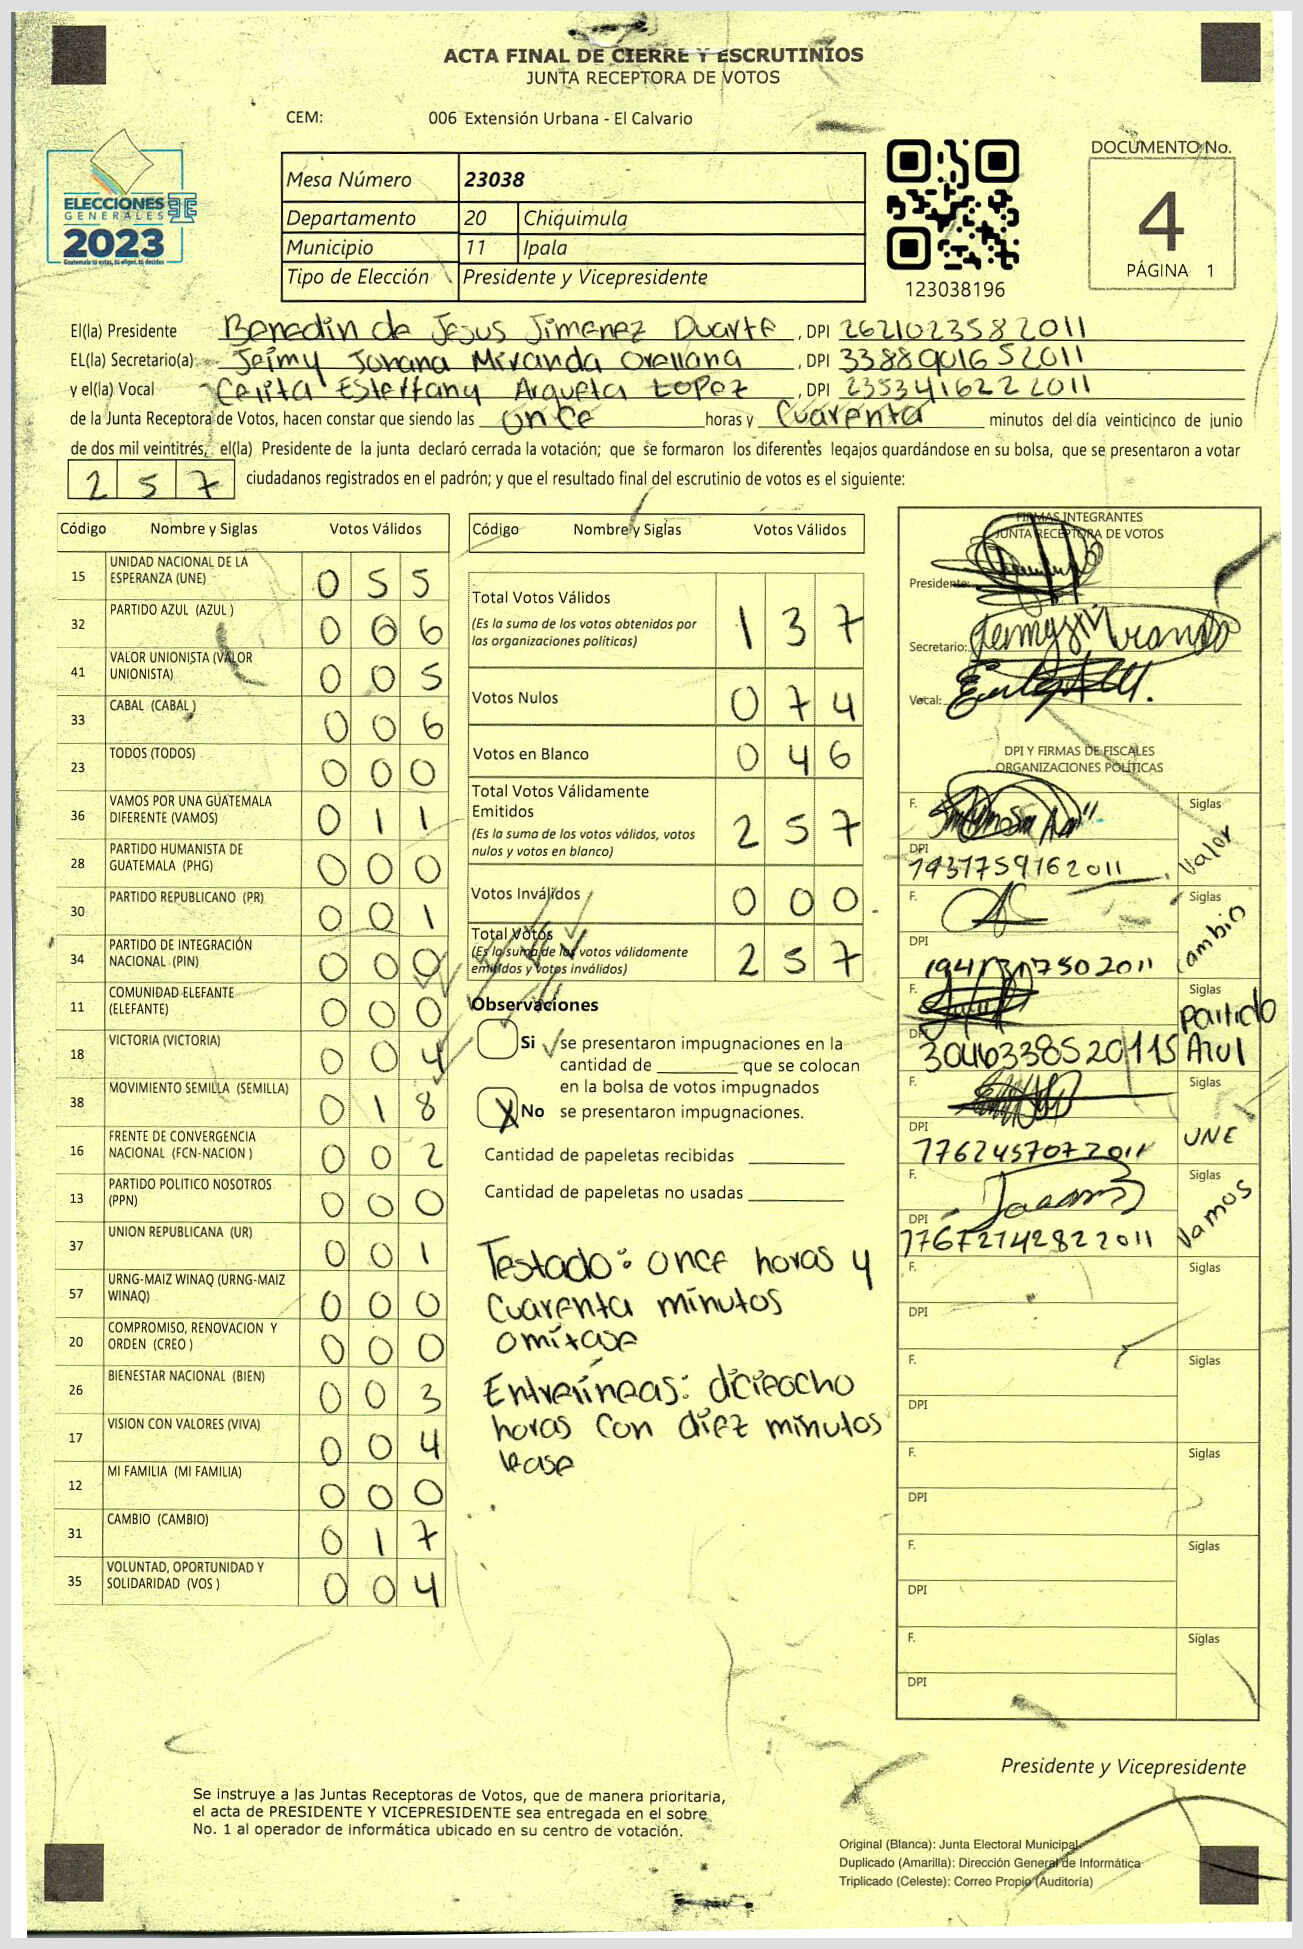 ACTA FINAL DE CIERRE Y ESCRUTINIOS
JUNTA RECEPTORA DE VOTOS
CEM: 006 Extensión Urbana - El Calvario
ELECCIONES
GENERALES
2023
Mesa Número 23038
Departamento 20 Chiquimula
Municipio 11 Ipala
Tipo de Elección Presidente y Vicepresidente
123038196
DOCUMENTO No.
4
PÁGINA 1
El(la) Presidente Benedin de Jesus Jimenez Duarte, DPI 2621023582011
EL(la) Secretario(a) Jeimy Johana Miranda Orellana, DPI 3388901652011
y el(la) Vocal Celita Esteffany Argueta Lopez, DPI 2353416222011
de la Junta Receptora de Votos, hacen constar que siendo las once horas y cuarenta minutos del día veinticinco de junio
de dos mil veintitrés, el(la) Presidente de la junta declaró cerrada la votación; que se formaron los diferentes legajos guardándose en su bolsa, que se presentaron a votar
257 ciudadanos registrados en el padrón; y que el resultado final del escrutinio de votos es el siguiente:
Código Nombre y Siglas Votos Válidos
15 UNIDAD NACIONAL DE LA ESPERANZA (UNE) 055
32 PARTIDO AZUL (AZUL ) 006
41 VALOR UNIONISTA (VALOR UNIONISTA) 005
33 CABAL (CABAL ) 006
23 TODOS (TODOS) 000
36 VAMOS POR UNA GUATEMALA DIFERENTE (VAMOS) 011
28 PARTIDO HUMANISTA DE GUATEMALA (PHG) 000
30 PARTIDO REPUBLICANO (PR) 001
34 PARTIDO DE INTEGRACIÓN NACIONAL (PIN) 000
11 COMUNIDAD ELEFANTE (ELEFANTE) 000
18 VICTORIA (VICTORIA) 004
38 MOVIMIENTO SEMILLA (SEMILLA) 018
16 FRENTE DE CONVERGENCIA NACIONAL (FCN-NACION ) 002
13 PARTIDO POLITICO NOSOTROS (PPN) 000
37 UNION REPUBLICANA (UR) 001
57 URNG-MAIZ WINAQ (URNG-MAIZ WINAQ) 000
20 COMPROMISO, RENOVACION Y ORDEN (CREO ) 000
26 BIENESTAR NACIONAL (BIEN) 003
17 VISION CON VALORES (VIVA) 004
12 MI FAMILIA (MI FAMILIA) 000
31 CAMBIO (CAMBIO) 017
35 VOLUNTAD, OPORTUNIDAD Y SOLIDARIDAD (VOS ) 004
Código Nombre y Siglas Votos Válidos
Total Votos Válidos 137
(Es la suma de los votos obtenidos por
las organizaciones políticas)
Votos Nulos 074
Votos en Blanco 046
Total Votos Válidamente
Emitidos 257
(Es la suma de los votos válidos, votos
nulos y votos en blanco)
Votos Inválidos 000
Total Votos 257
(Es la suma de los votos válidamente
emitidos y votos inválidos)
Observaciones
Si se presentaron impugnaciones en la
cantidad de ________ que se colocan
en la bolsa de votos impugnados
X No se presentaron impugnaciones.
Cantidad de papeletas recibidas
Cantidad de papeletas no usadas
Testado: once horas y
cuarenta minutos
omitase
Entrelineas: dicieocho
horas con diez minutos
lease
FIRMAS INTEGRANTES
JUNTA RECEPTORA DE VOTOS
Presidente:
Secretario:
Vocal:
DPI Y FIRMAS DE FISCALES
ORGANIZACIONES POLÍTICAS
F. Siglas
DPI 1931759162011 Valor
F. Siglas
DPI Cambio
F. Siglas
DPI Partido Azul
F. Siglas
DPI 1762457072011 UNE
F. Siglas
DPI Vamos
F. Siglas
DPI
F. Siglas
DPI
F. Siglas
DPI
F. Siglas
DPI
F. Siglas
DPI
Presidente y Vicepresidente
Se instruye a las Juntas Receptoras de Votos, que de manera prioritaria,
el acta de PRESIDENTE Y VICEPRESIDENTE sea entregada en el sobre
No. 1 al operador de informática ubicado en su centro de votación.
Original (Blanca): Junta Electoral Municipal
Duplicado (Amarilla): Dirección General de Informática
Triplicado (Celeste): Correo Propio (Auditoría)